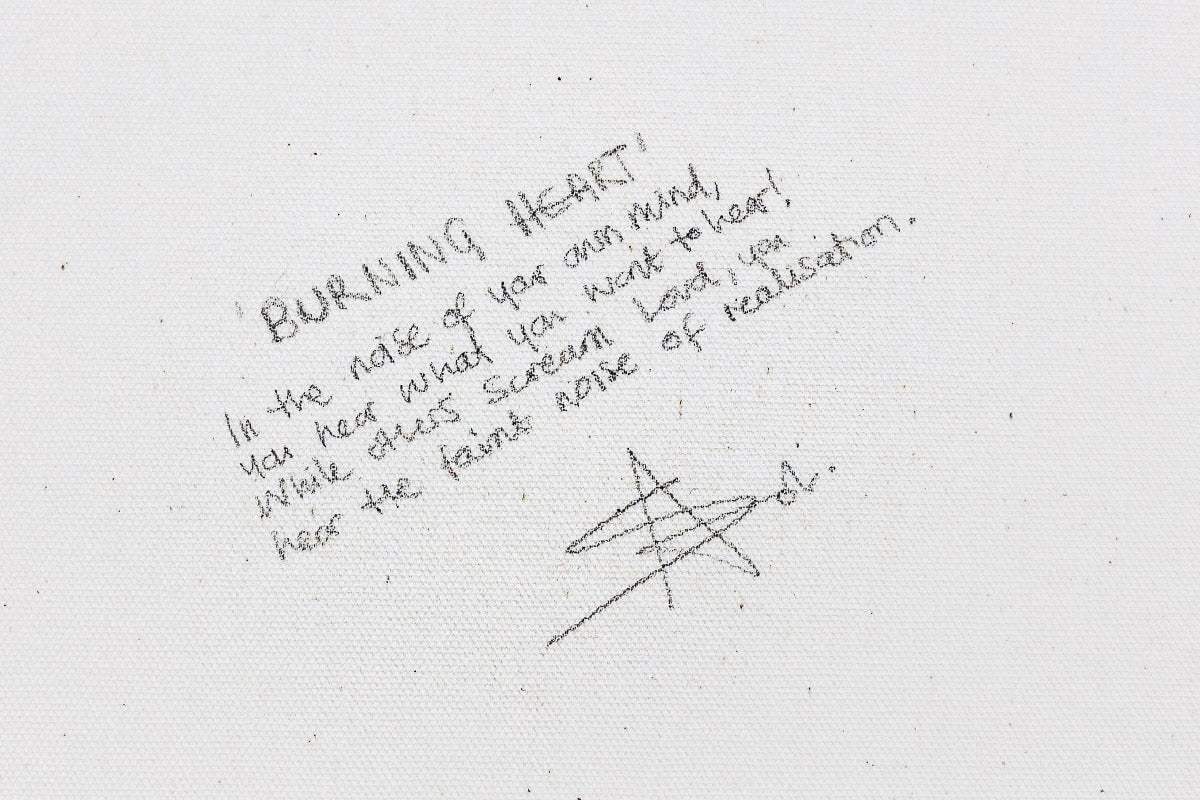 'BURNING HEART'
In the noise of your own mind,
you hear what you want to hear!
While others scream loud, you
hear the faint noise of realisation.